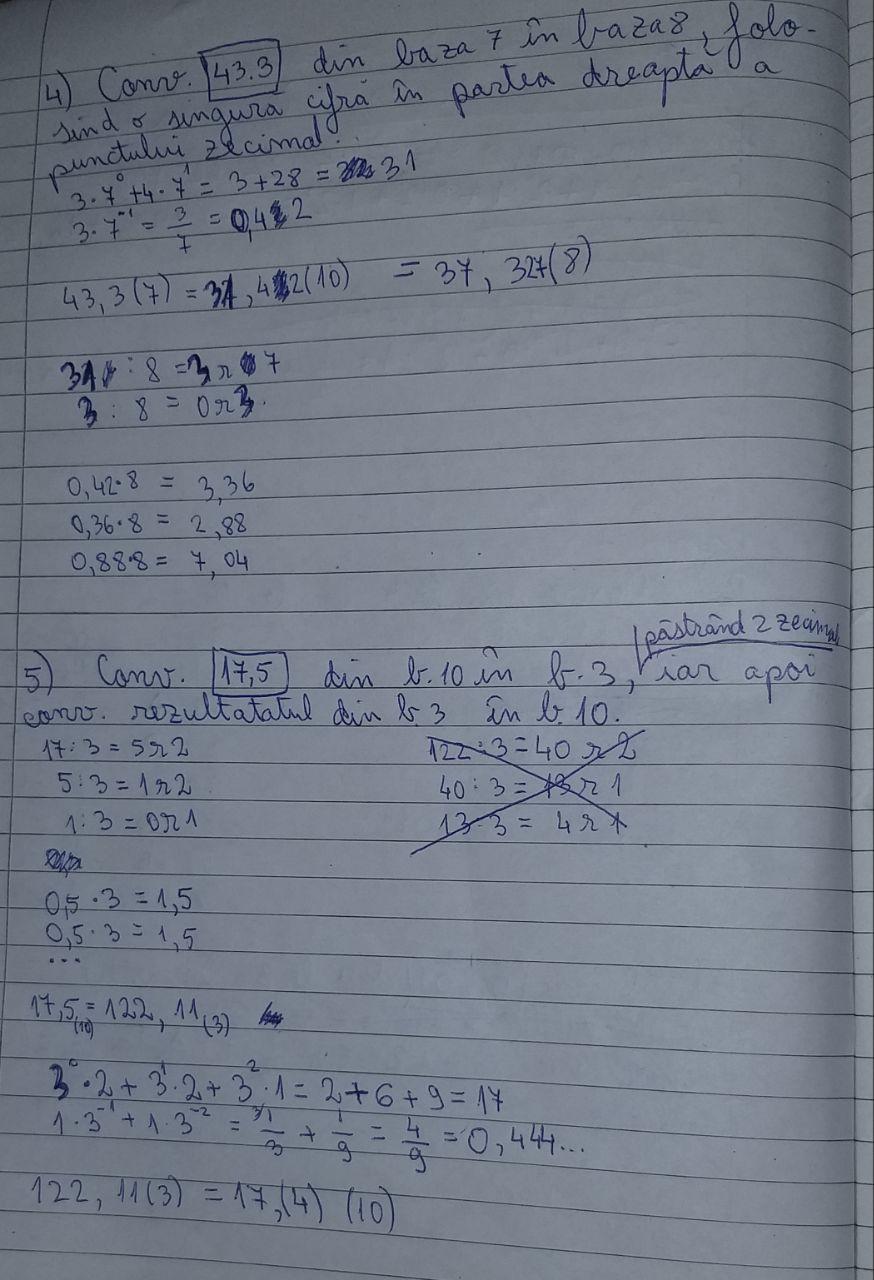 4) Conv. 43.3 din baza 7 în baza 8, folo-
sind o singura cifră în partea dreaptă a
punctului zecimal.
3·7⁰+4·7¹ = 3+28 = 31
3·7⁻¹ = 3/7 = 0,42
43,3(7) = 31,42(10) = 37,327(8)
31 : 8 = 3 r 7
3 : 8 = 0 r 3.
0,42·8 = 3,36
0,36·8 = 2,88
0,88·8 = 7,04
păstrând 2 zecimal
5) Conv. 17,5 din b.10 în b.3, iar apoi
conv. rezultatatul din b.3 în b.10.
17:3 = 5 r 2
5:3 = 1 r 2
1:3 = 0 r 1
122:3 = 40 r 2
40:3 = 13 r 1
13:3 = 4 r 1
0,5·3 = 1,5
0,5·3 = 1,5
...
17,5(10) = 122,11(3)
3⁰·2 + 3¹·2 + 3²·1 = 2+6+9 = 17
1·3⁻¹ + 1·3⁻² = ³⁾1/3 + 1/9 = 4/9 = 0,444...
122,11(3) = 17,(4) (10)